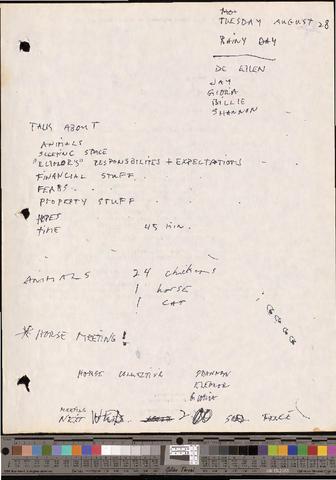 TUESDAY AUGUST 28
RAINY DAY
DE EILEN
JAY
GLORIA
BILLIE
SHANNON
TALK ABOUT
ANIMALS
SLEEPING SPACE
"ELINOR'S" RESPONSIBILITES + EXPECTATIONS
FINANCIAL STUFF.
FEARS.
PROPERTY STUFF
HOPES
TIME 45 MIN.
ANIMALS 24 chickens
1 horse
1 CAT
* HORSE MEETING!
HORSE COLLECTIVE SHANNON
ELEANOR
GLORIA
MEETING
NEXT 2 00